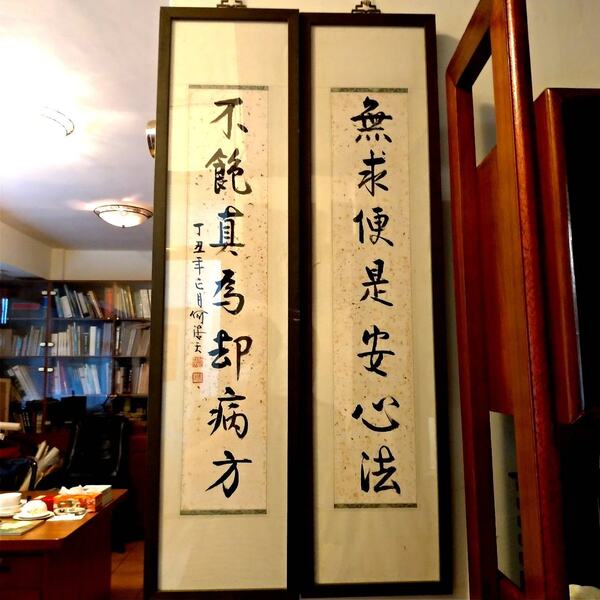 無求便是安心法
不飽真為却病方
丁丑年正月何浩天